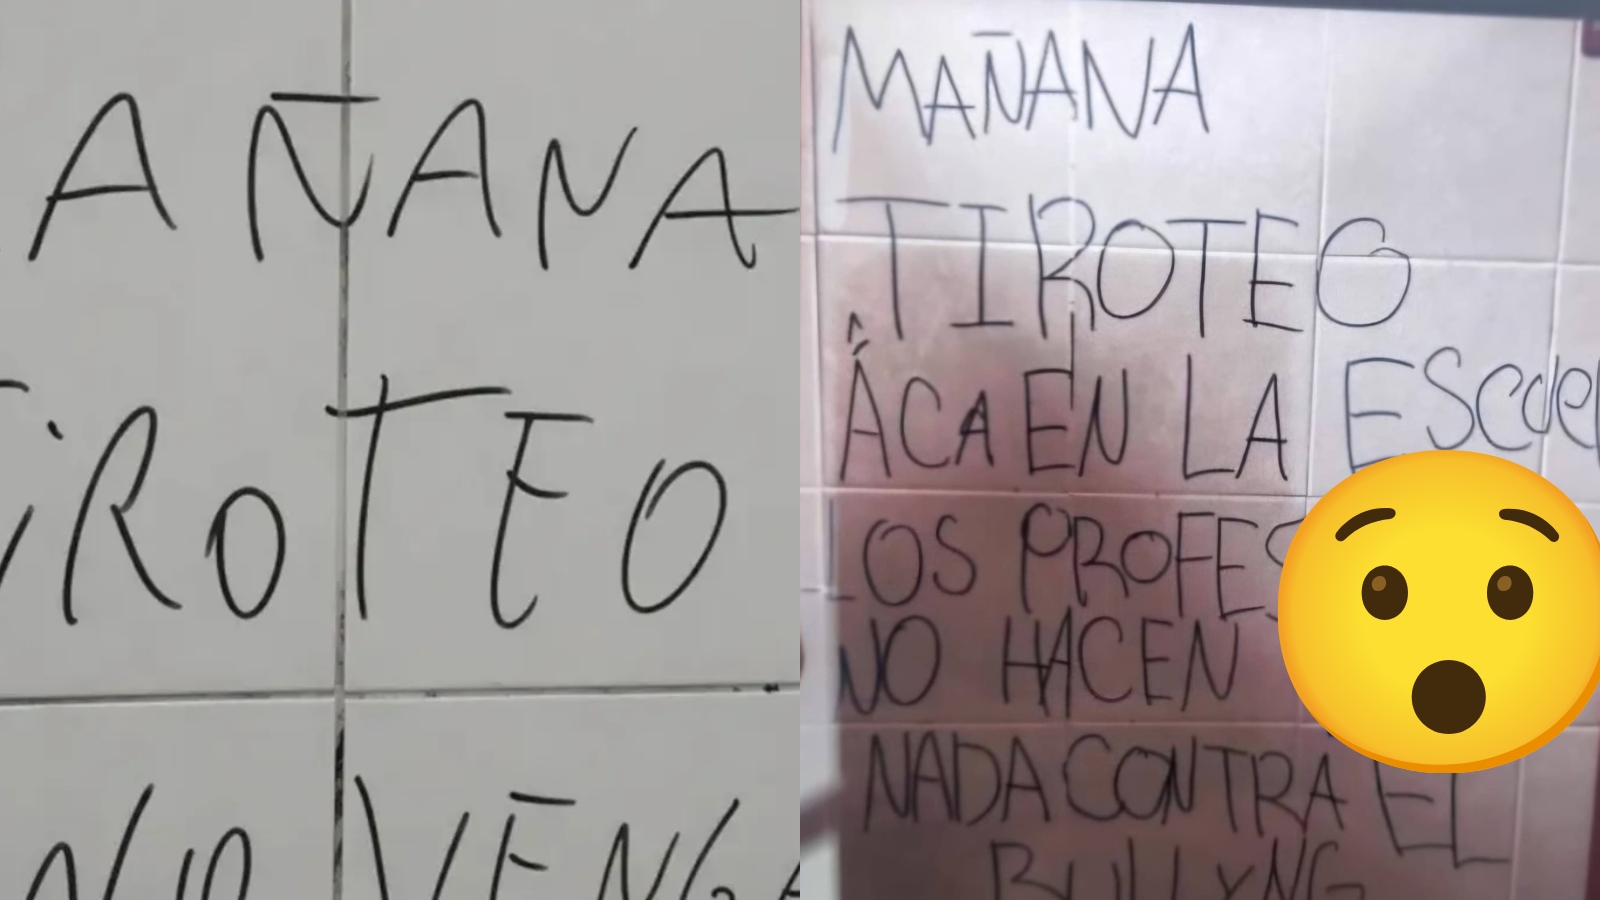 AÑANA
TiROTEO
NO VENGA
MAÑANA
TIROTEO
ACA EN LA ESCUEL
LOS PROFES
NO HACEN
NADA CONTRA EL
BULLYNG